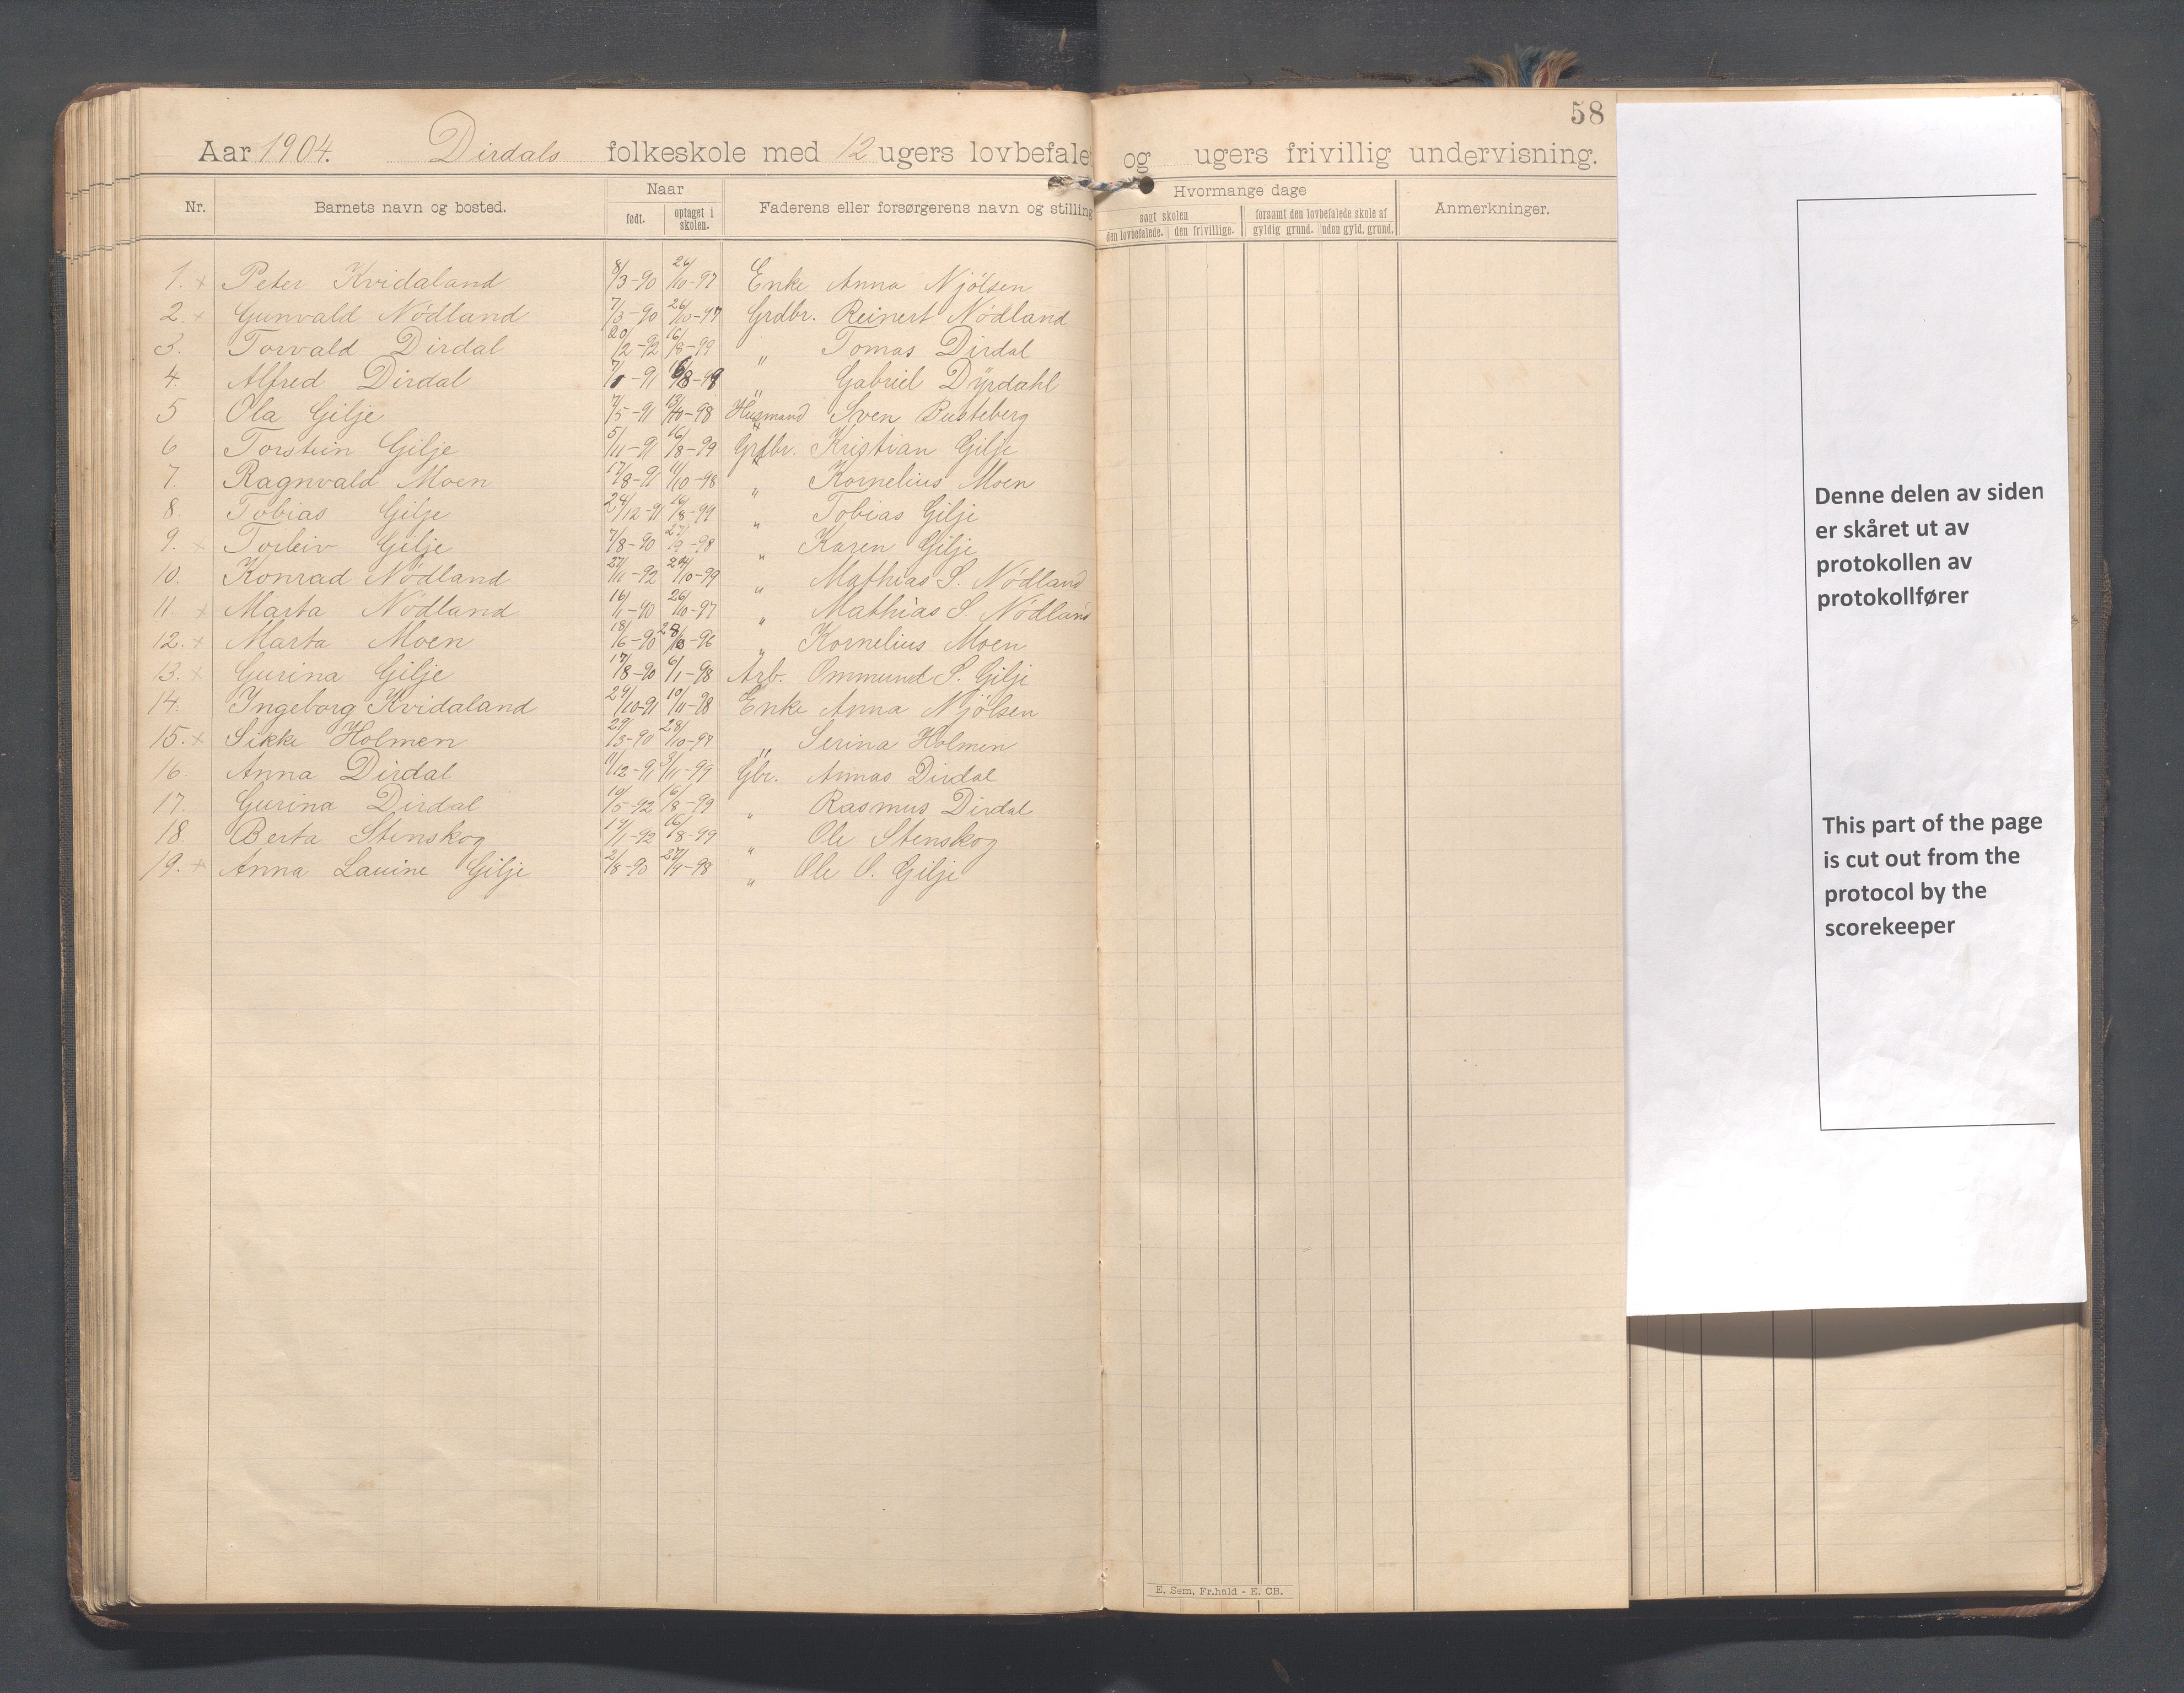 58
Aar 1904. Dirdals folkeskole med 12 ugers lovbefale og ugers frivillig undervisning.
Nr. Barnets navn og bosted. Naar født. optaget i skolen. Faderens eller forsørgerens navn og stilling Hvormange dage søgt skolen den lovbefalede. den frivillige. forsømt den lovbefalede skole af gyldig grund. uden gyld. grund. Anmerkninger.
1. x Peter Kvidaland 8/3-90 26/10-97 Enke Anna Njölsen
2. x Gunvald Nödland 7/3-90 26/10-97 Grdbr. Reinert Nödland
3. Torvald Dirdal 20/2-92 16/8-99 " Tomas Dirdal
4. Alfred Dirdal -91 " Gabriel Dÿrdahl
5 Ola Gilje 7/5-91 13/10-98 Husmand Sven Busteberg
6 Torstein Gilje 5/11-91 16/8-99 Grdbr. Kristian Gilje
7. Ragnvald Moen 17/8-91 11/10-98 " Kornelius Moen
8 Tobias Gilje 24/12-91 16/8-99 " Tobias Gilje
9. x Torleiv Gilje 7/8-90 -98 " Karen Gilje
10. Konrad Nödland 27/11-92 24/10-99 " Mathias S. Nödland
11. x Marta Nödland 16/1-90 26/10-97 " Mathias S. Nödland
12. x Marta Moen 18/6-90 -96 " Kornelius Moen
13. x Gurina Gilje 17/8-90 6/1-98 Arb. Ommund S. Gilje
14. Ingeborg Kvidaland 29/10-91 10/11-98 Enke Anna Njölsen
15. x Sikke Holmen 29/3-90 28/10-97 " Serina Holmen
16. Anna Dirdal 11/12-91 3/11-99 Gbr. Annas Dirdal
17. Gurina Dirdal 10/5-92 16/8-99 " Rasmus Dirdal
18. Berta Stenskog 19/1-92 16/8-99 " Ole Stenskog
19. x Anna Lauine Gilje 2/8-90 -98 " Ole O. Gilje
E. Sem, Fr.hald - E. CB.
Denne delen av siden
er skåret ut av
protokollen av
protokollfører
This part of the page
is cut out from the
protocol by the
scorekeeper